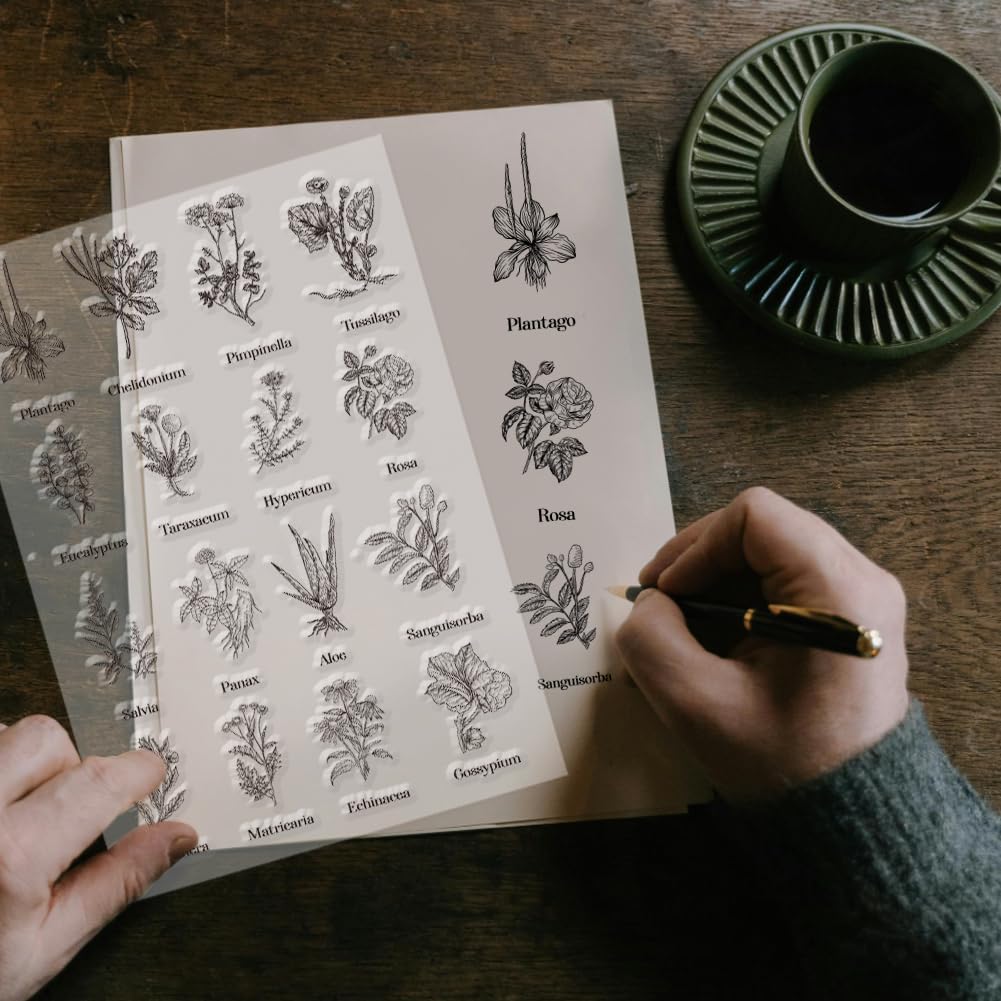 Plantago
Chelidonium
Pimpinella
Tussilago
Eucalyptus
Taraxacum
Hypericum
Rosa
Salvia
Panax
Aloe
Sanguisorba
Matricaria
Echinacea
Gossypium
Plantago
Rosa
Sanguisorba